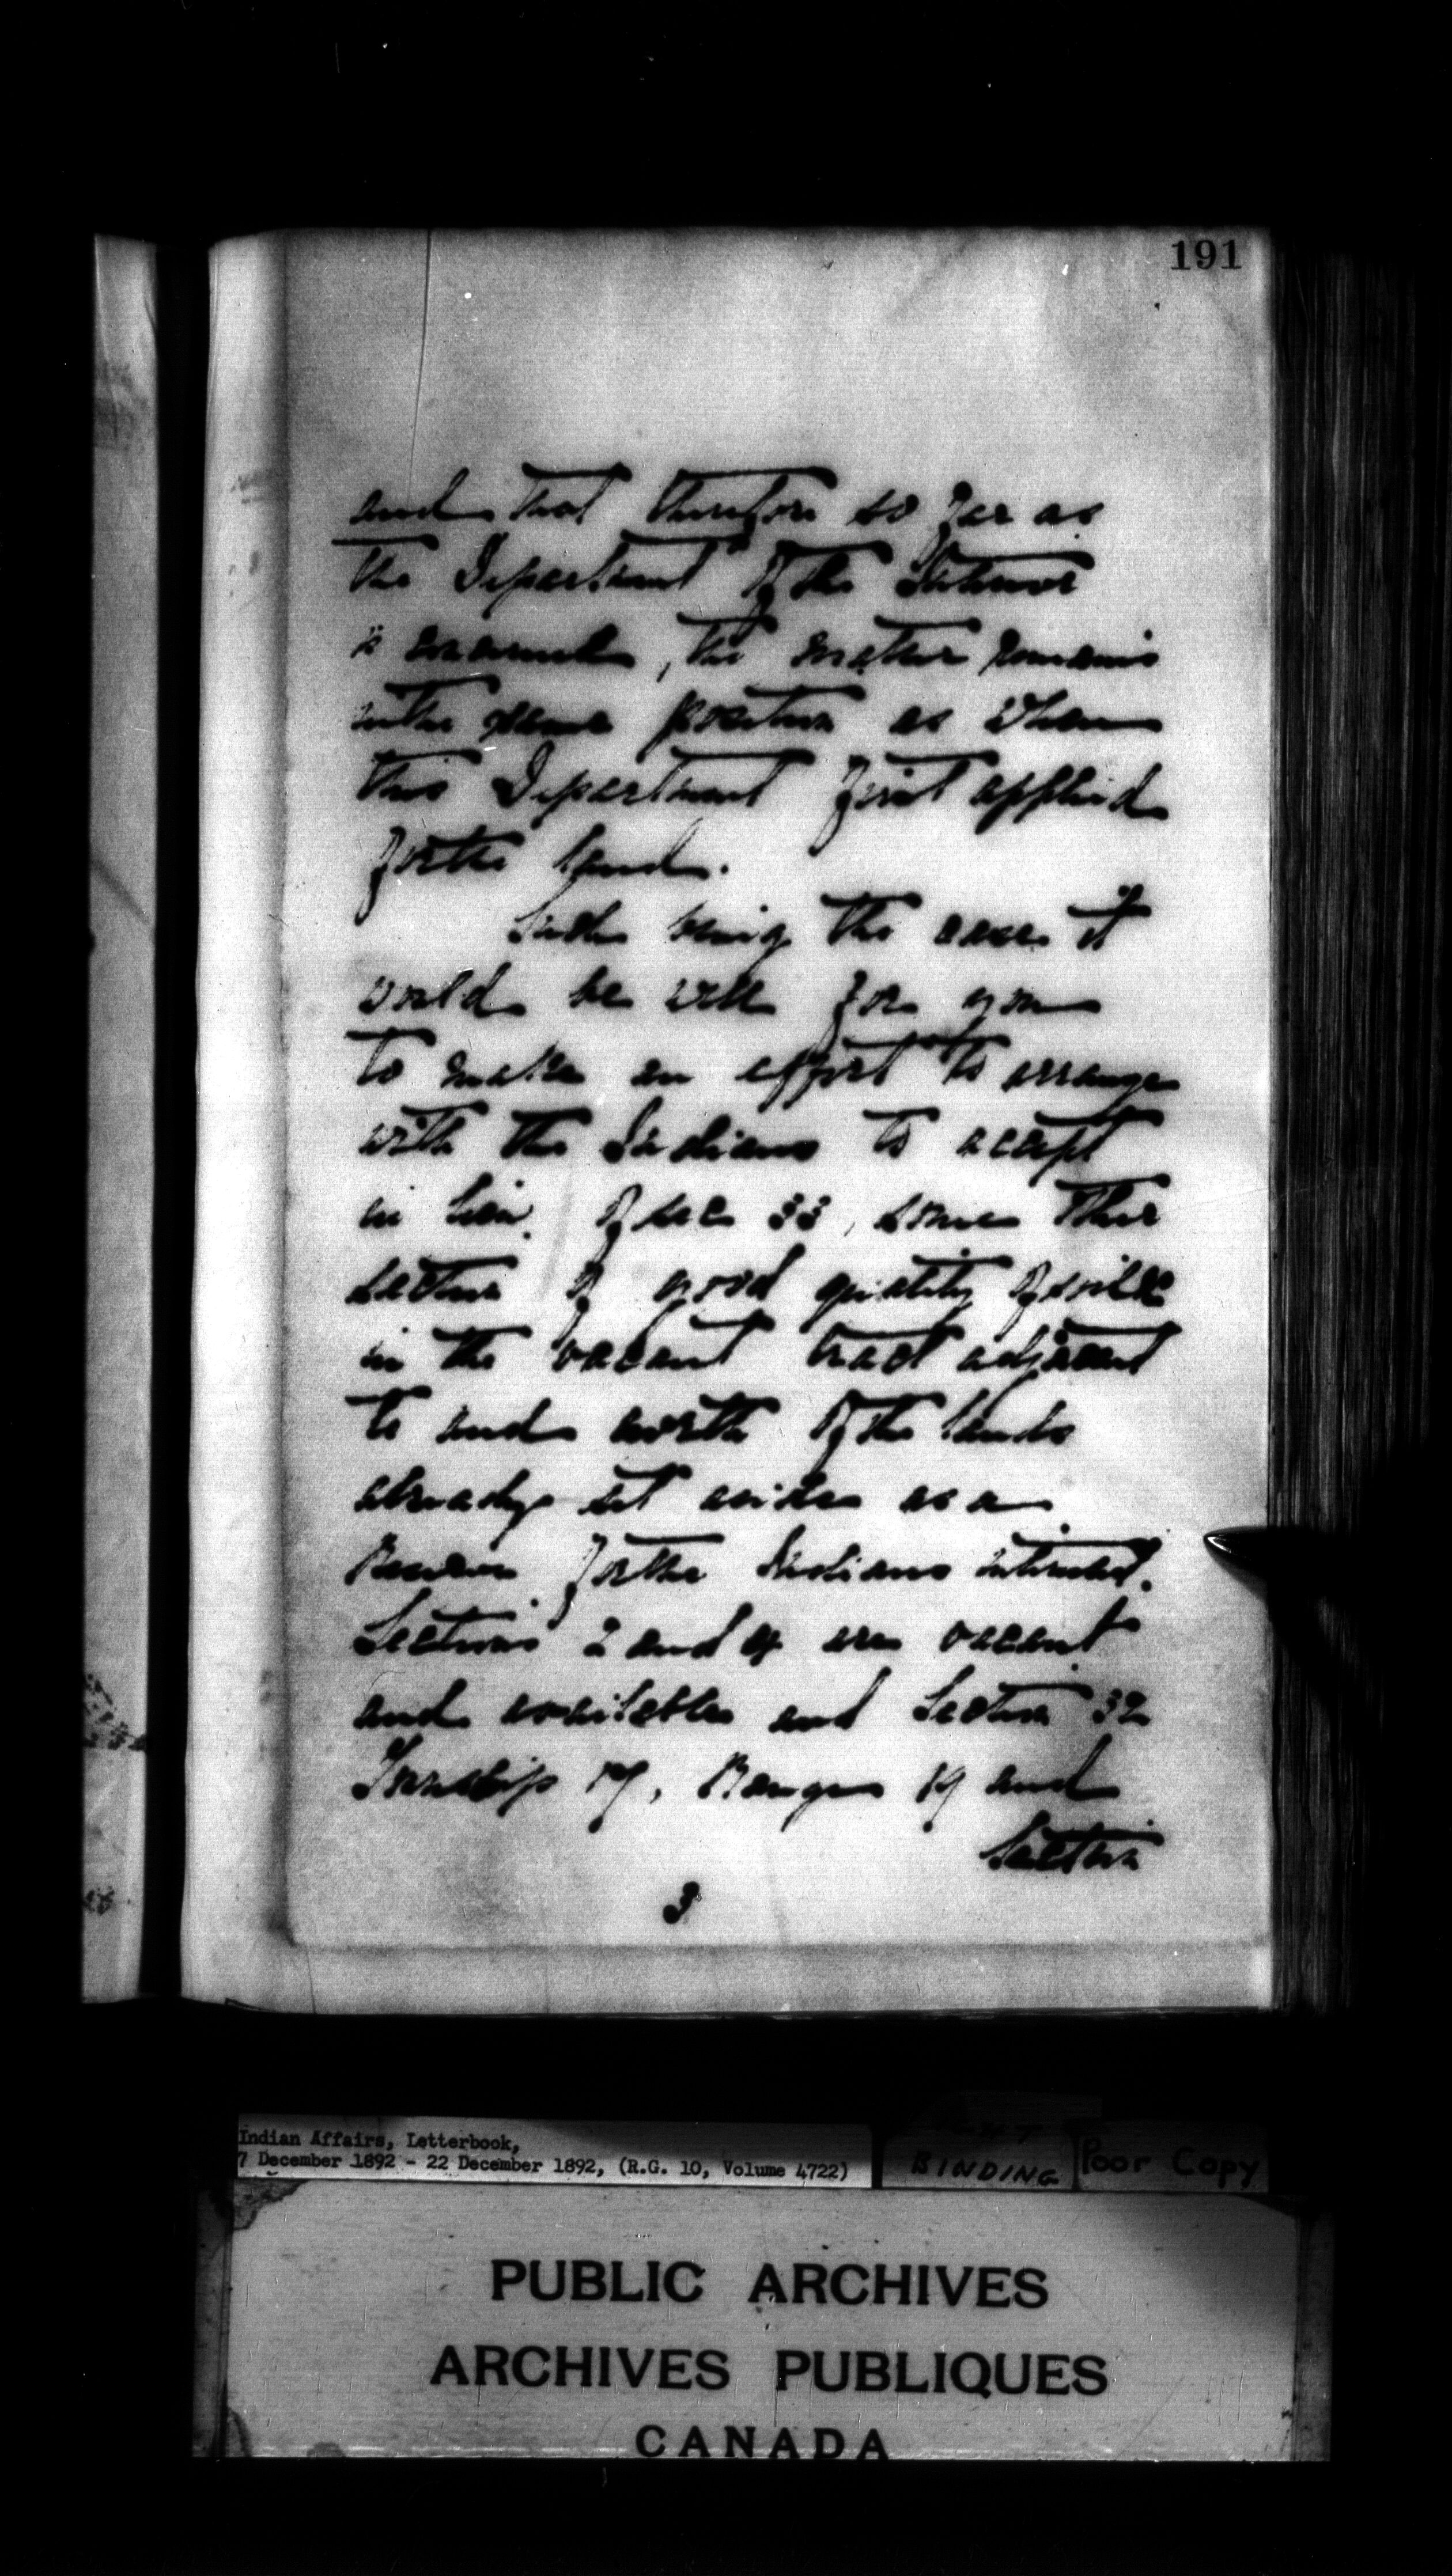 191
and that therefore so far as
the Department of the Interior
is concerned, the matter remains
in the same position as when
this Department first applied
for the land.
Such being the case it
would be well for you
to make an effort to arrange
with the Indians to accept
in lieu of sec 33, some other
section of good quality of soil
in the vacant tract adjacent
to and north of the lands
already set aside as a
Reserve for the Indians interested.
Sections 2 and 4 are vacant
and available and Section 32
Township 17, Range 19 and
Section
3
Indian Affairs, Letterbook,
7 December 1892 - 22 December 1892, (R.G. 10, Volume 4722)
BINDING
Poor Copy
PUBLIC ARCHIVES
ARCHIVES PUBLIQUES
CANADA